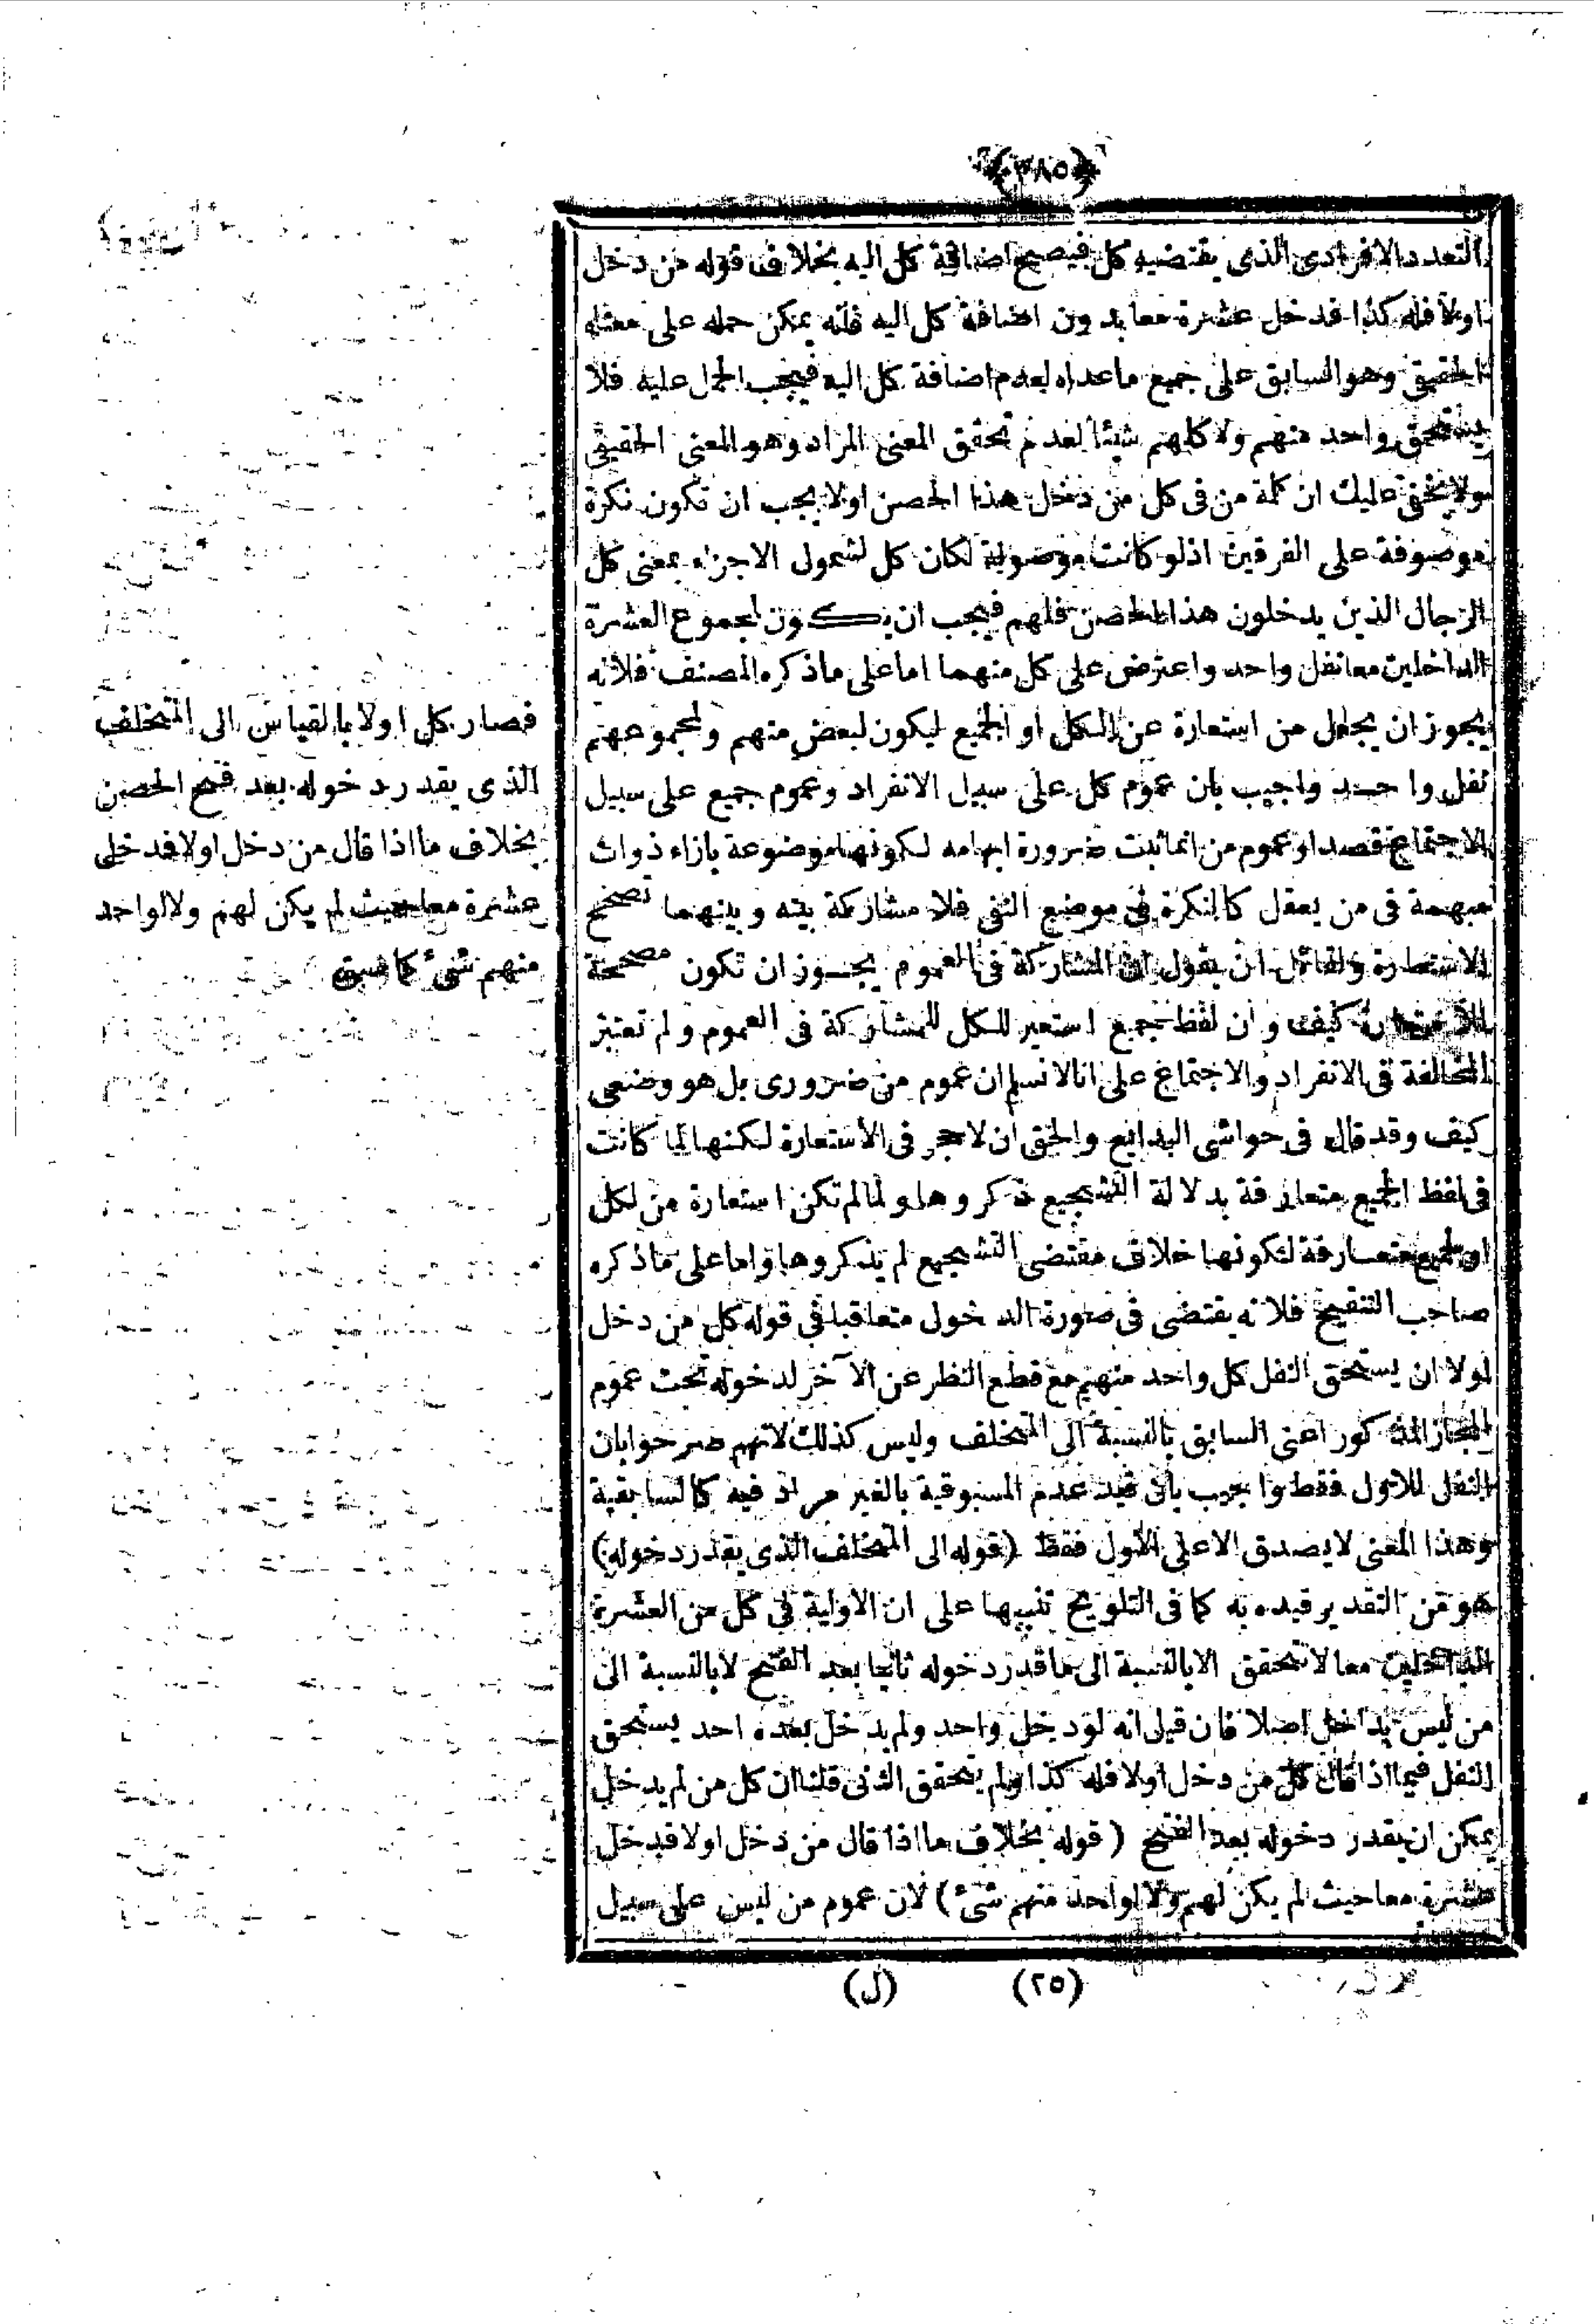 ﴿٣٨٥﴾
التعدد الافرادى الذى يقتضيه كل فيصح اضافة كل اليه بخلاف قوله من دخل
اولا فله كذا فدخل عشرة معا بدون اضافة كل اليه فانه يمكن حمله على معناه
الحقيقى وهو السابق على جميع ماعداه لعدم اضافة كل اليه فيجب الحمل عليه فلا
يستحق واحد منهم ولا كلهم شيئا لعدم تحقق المعنى المراد وهو المعنى الحقيقى
ولا يخفى عليك ان كلمة من فى كل من دخل هذا الحصن اولا يجب ان تكون نكرة
موصوفة على الفرقين اذلو كانت موصولة لكان كل لشمول الاجزاء بمعنى كل
الرجال الذين يدخلون هذا الحصن فلهم فيجب ان يكون لمجموع العشرة
الداخلين معا نفل واحد واعترض على كل منهما اما على ماذكره المصنف فلانه
يجوز ان يجعل من استعارة عن الكل او الجميع ليكون لبعض منهم ولمجموعهم
نفل واحد واجيب بان عموم كل على سبيل الانفراد وعموم جميع على سبيل
الاجتماع قصدا وعموم من انما ثبت ضرورة ابهامه لكونها موضوعة بازاء ذوات
مبهمة فى من يعقل كالنكرة فى موضع النفى فلا مشاركة بينه وبينهما تصحح
الاستعارة ولقائل ان يقول ان المشاركة فى العموم يجوز ان تكون مصححة
للاستعارة كيف وان لفظ جميع استعير للكل للمشاركة فى العموم ولم تعتبر
المخالفة فى الانفراد والاجتماع على انالانسلم ان عموم من ضرورى بل هو وضعى
كيف وقد قال فى حواشى البدايع والحق ان لاحجر فى الاستعارة لكنها لما كانت
فى لفظ الجميع متعارفة بدلالة التشجيع ذكروها ولما لم تكن استعارة من لكل
او لجميع متعارفة لكونها خلاف مقتضى التشجيع لم يذكروها واما على ماذكره
صاحب التنقيح فلانه يقتضى فى صورة الدخول متعاقبا فى قوله كل من دخل
اولا ان يستحق النفل كل واحد منهم مع قطع النظر عن الآخر لدخوله تحت عموم
المجاز المذكور اعنى السابق بالنسبة الى المتخلف وليس كذلك لانهم صرحوا بان
النفل للاول فقط واجيب بان قيد عدم المسبوقية بالغير مراد فيه كالسابقية
وهذا المعنى لا يصدق الا على الاول فقط (قوله الى المتخلف الذى يقدر دخوله)
هو من التقدير قيده به كما فى التلويح تنبيها على ان الاولية فى كل من العشرة
الداخلين معا لا تتحقق الا بالنسبة الى ماقدر دخوله ثانيا بعد الفتح لا بالنسبة الى
من ليس بداخل اصلا فان قيل انه لو دخل واحد ولم يدخل بعده احد يستحق
النفل فيما اذا قال كل من دخل اولا فله كذا ولم يتحقق الثانى قلنا ان كل من لم يدخل
يمكن ان يقدر دخوله بعد الفتح (قوله بخلاف ما اذا قال من دخل اولا فدخل
عشرة معا حيث لم يكن لهم ولا لواحد منهم شئ) لان عموم من ليس على سبيل
فصار كل اولا بالقياس الى المتخلف
الذى يقدر دخوله بعد فتح الحصن
بخلاف ما اذا قال من دخل اولا فدخل
عشرة معا حيث لم يكن لهم ولا لواحد
منهم شئ كما سبق
(٢٥) (ل)